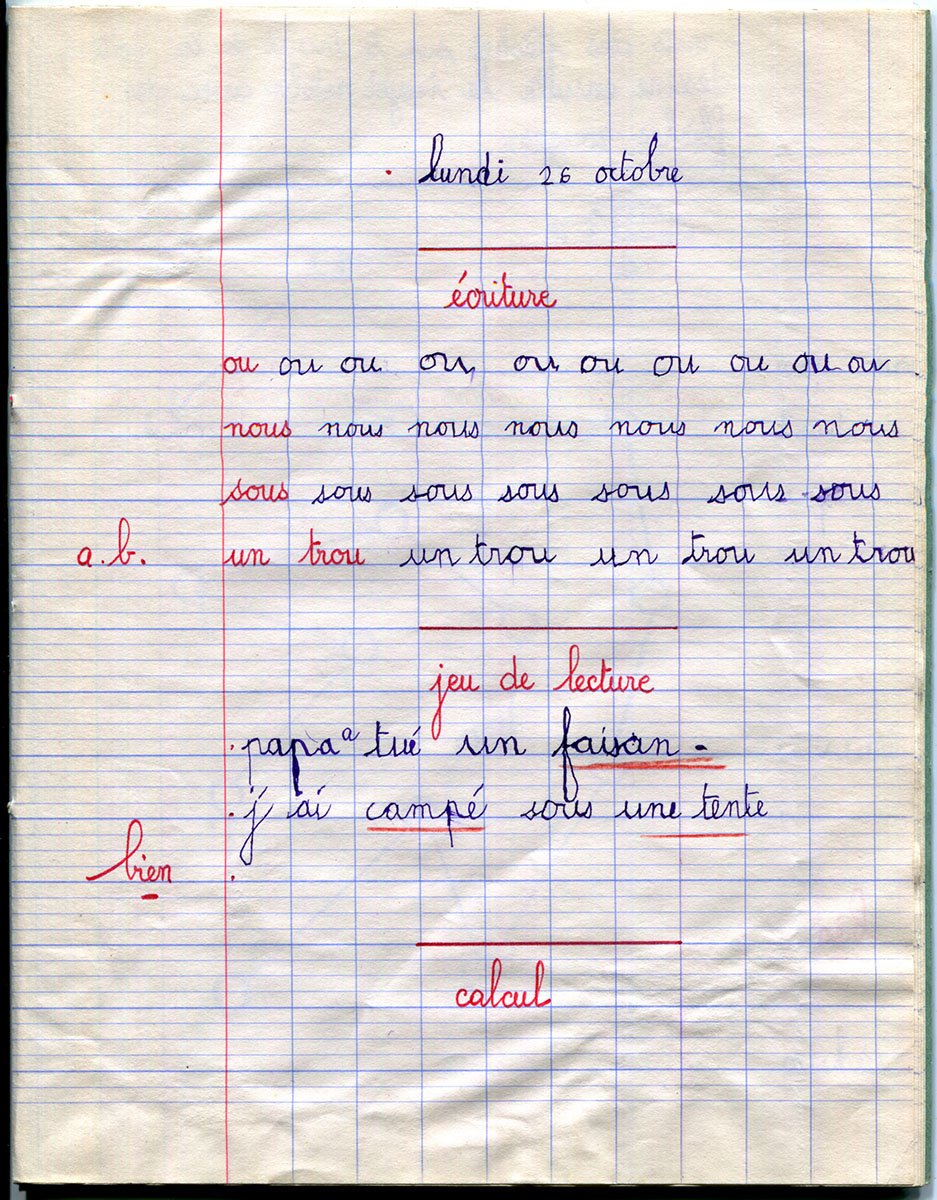 lundi 26 octobre
écriture
ou ou ou ou ou ou ou ou ou ou
nous nous nous nous nous nous nous
sous sous sous sous sous sous sous
a.b. un trou un trou un trou un trou
jeu de lecture
papa a tué un faisan.
j'ai campé sous une tente
bien
calcul